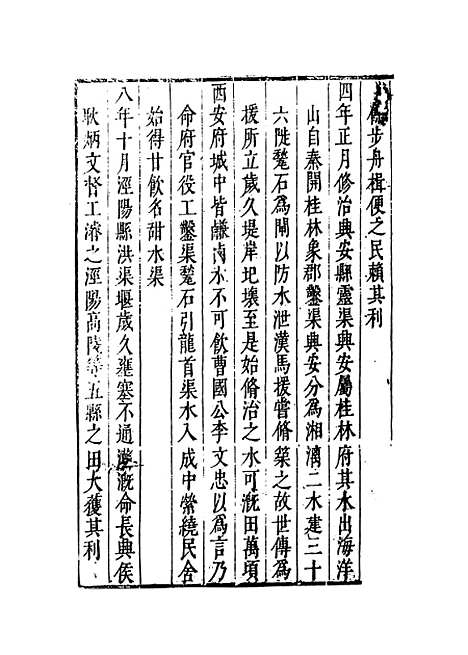 步舟楫便之民賴其利
四年正月修治興安縣靈渠興安屬桂林府其水出海洋
山自秦開桂林象郡鑿渠興安分爲湘漓二水建三十
六陡甃石爲閘以防水泄漢馬援嘗脩築之故世傳爲
援所立歲久堤岸圮壞至是始脩治之水可溉田萬頃
西安府城中皆鹻卤水不可飲曹國公李文忠以爲言乃
命府官役工鑿渠甃石引龍首渠水入成中縈繞民舍
始得甘飲名甜水渠
八年十月涇陽縣洪渠堰歲久壅塞不通溉命長興侯
耿炳文督工濬之涇陽高陵等五縣之田大獲其利